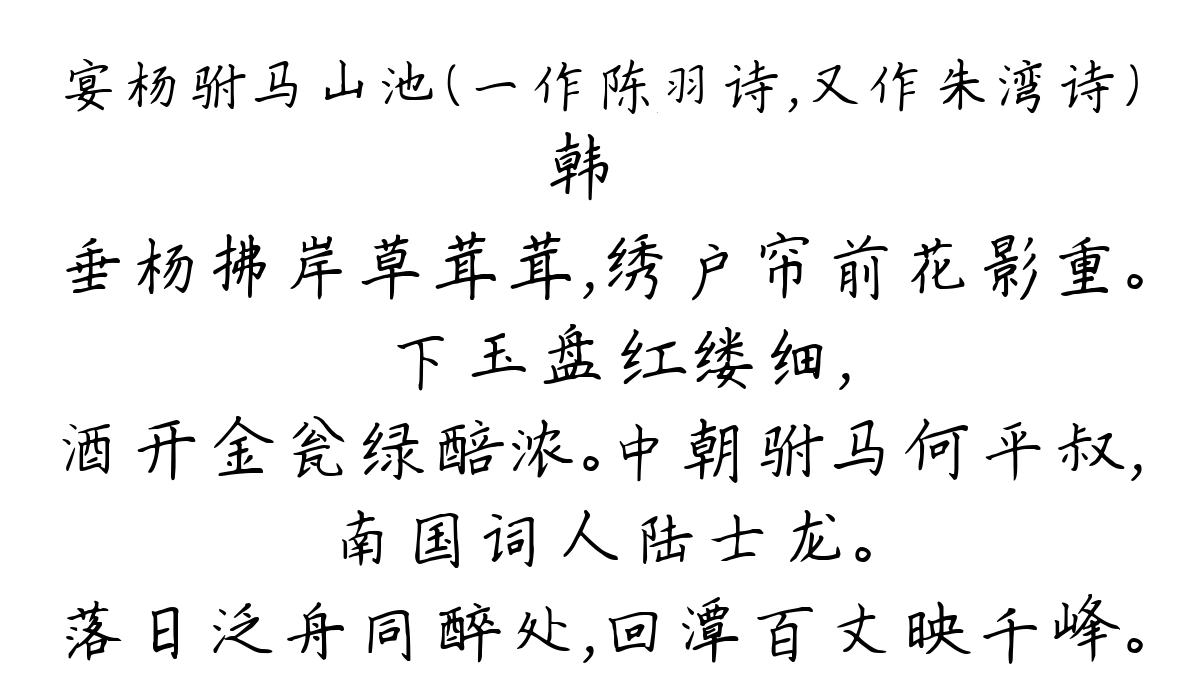 宴杨驸马山池(一作陈羽诗,又作朱湾诗)
韩
垂杨拂岸草茸茸,绣户帘前花影重。
下玉盘红缕细,
酒开金瓮绿醅浓。中朝驸马何平叔,
南国词人陆士龙。
落日泛舟同醉处,回潭百丈映千峰。